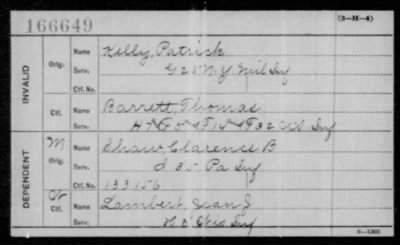 166649
(3-H-4)
INVALID
Orig.
Name Kelly, Patrick
Serv. G 25 N.Y. Mil Inf
Ctf. No.
Ctf.
Name Barrett, Thomas
Serv. H & G 5 & F 15 & F 32 U.S. Inf
DEPENDENT
M
Orig.
Name Shaw, Clarence B
Serv. I 35 Pa Inf
Ctf. No. 133156
Ctf.
Name Lambert, J
Serv. Inf